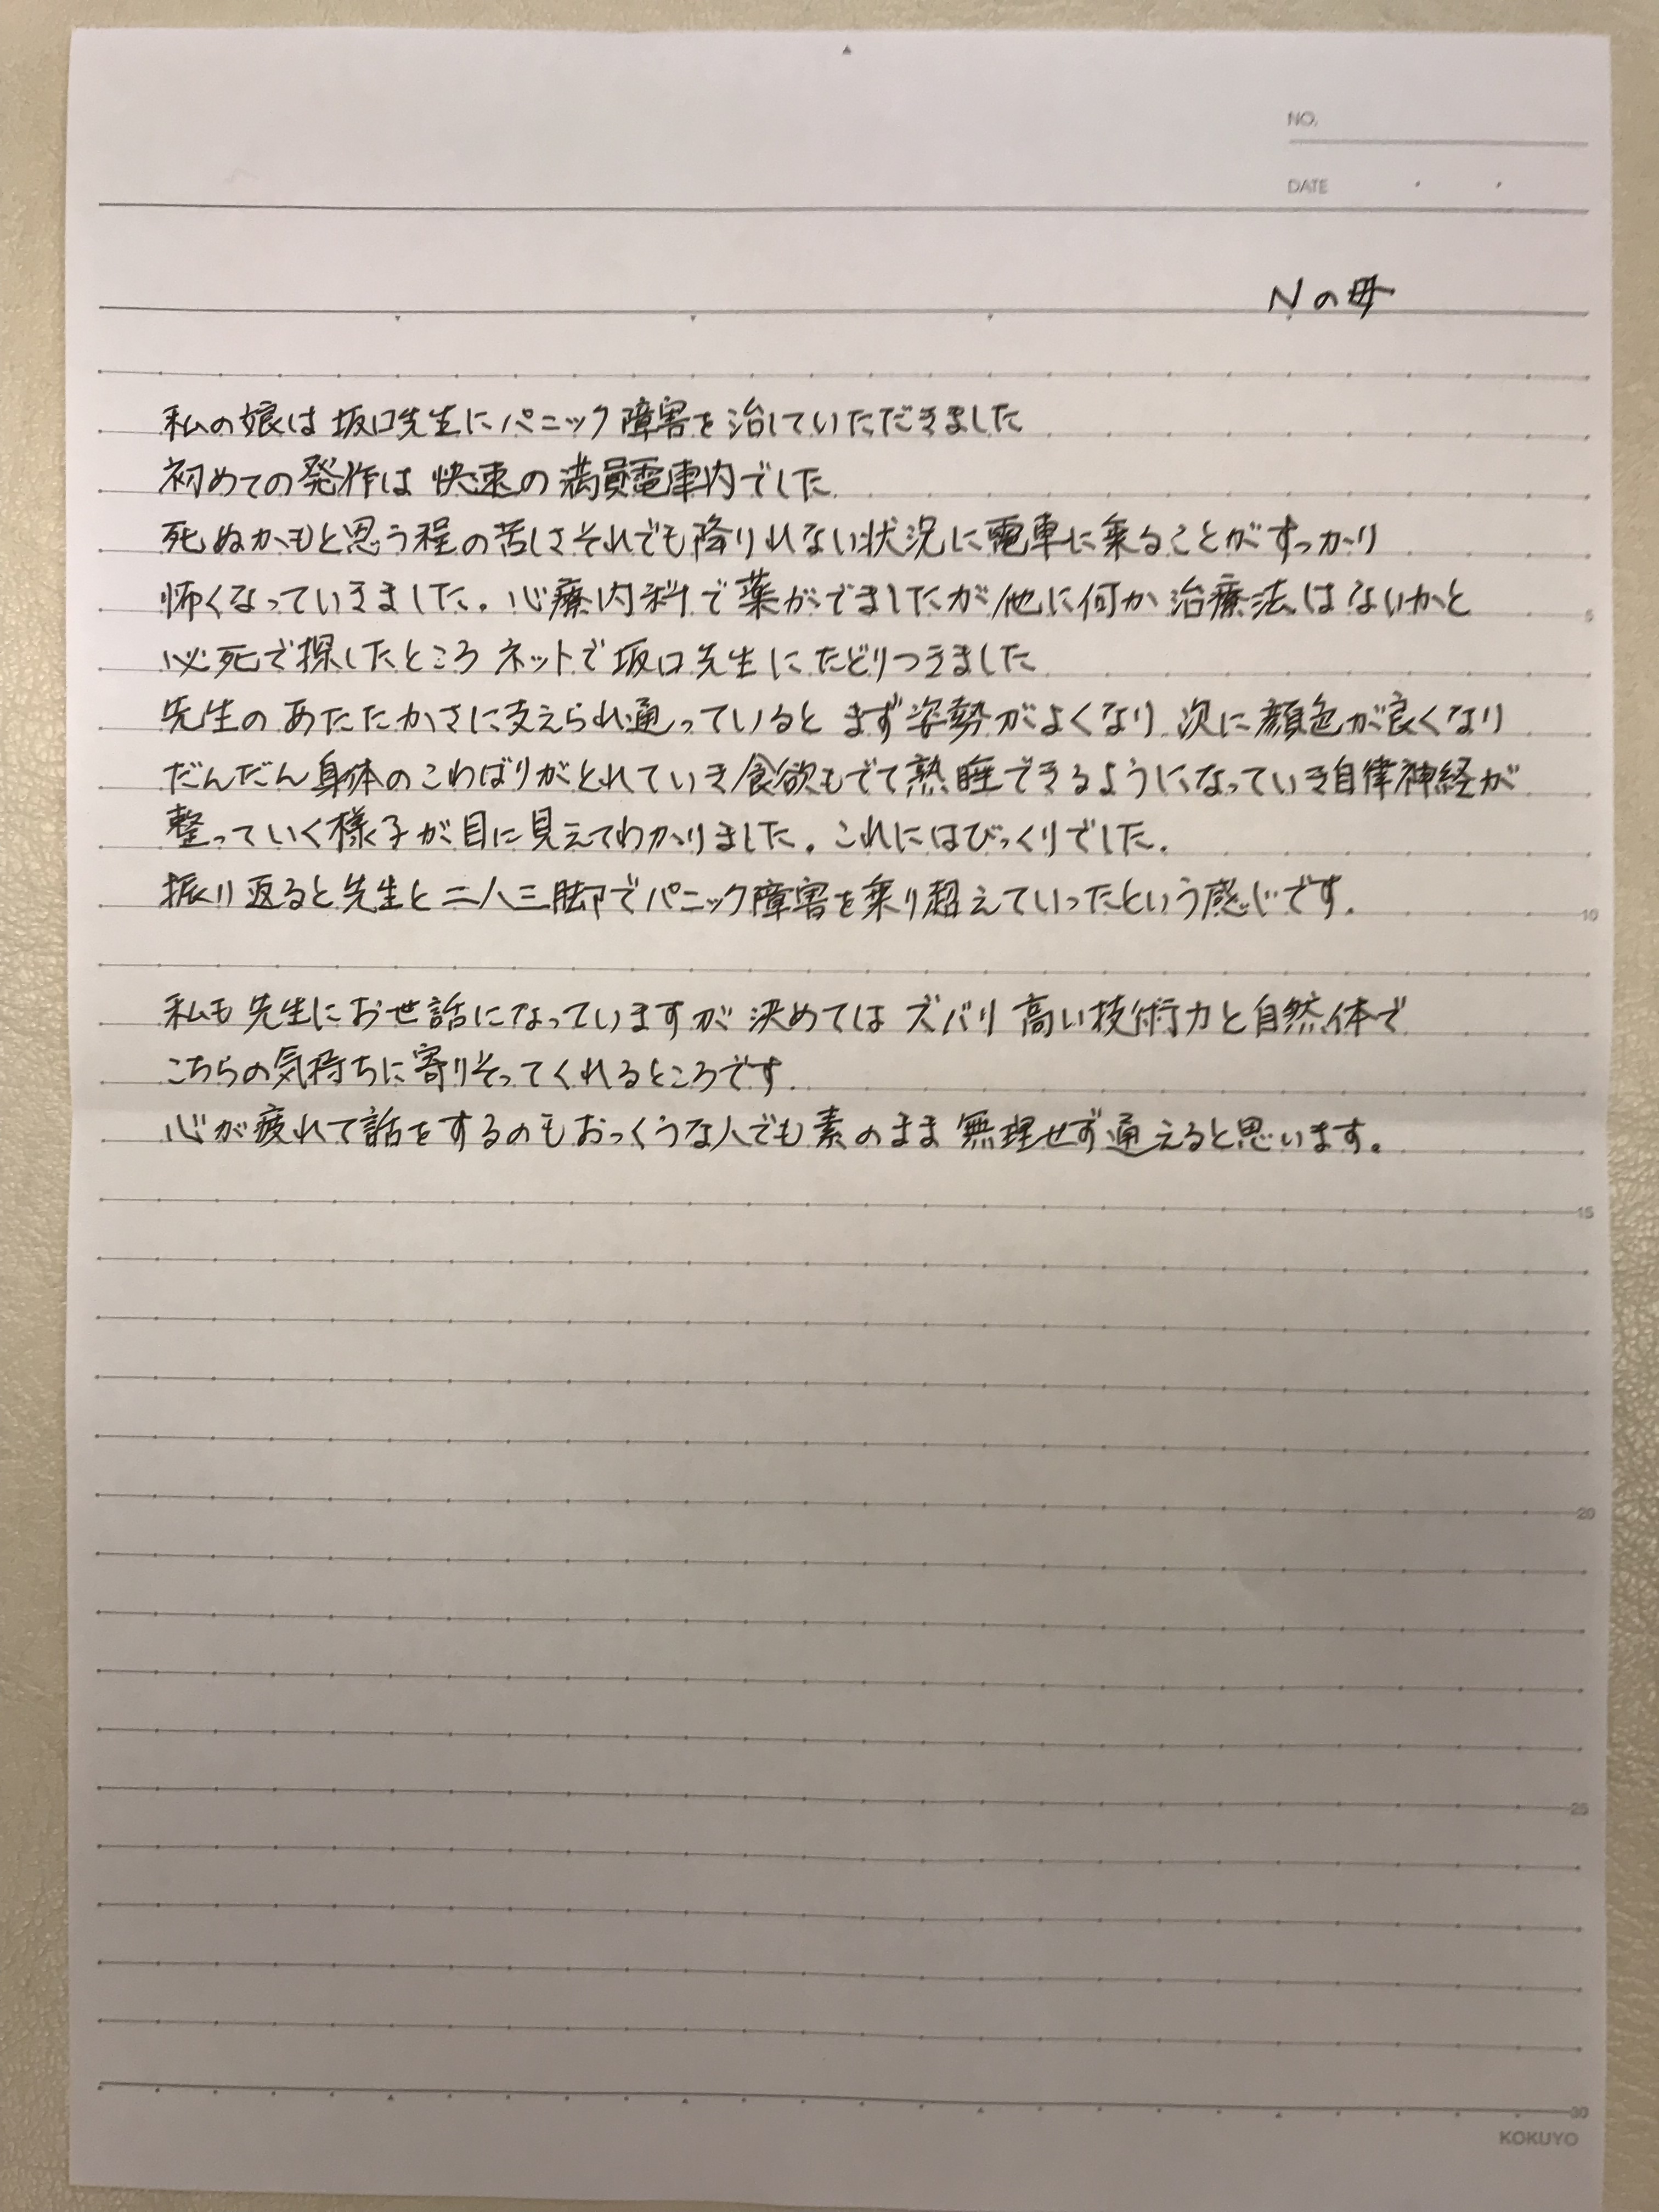 NO.
DATE
Nの母
私の娘は坂口先生にパニック障害を治していただきました
初めての発作は快速の満員電車内でした
死ぬかもと思う程の苦しさそれでも降りれない状況に電車に乗ることがすっかり
怖くなっていきました。心療内科で薬がでましたが他に何か治療法はないかと
5
必死で探したところネットで坂口先生にたどりつきました
先生のあたたかさに支えられ通っていると まず姿勢がよくなり 次に顔色が良くなり
だんだん身体のこわばりがとれていき食欲もでて熟睡できるようになっていき自律神経が
整っていく様子が目に見えてわかりました。これにはびっくりでした。
振り返ると先生と二人三脚でパニック障害を乗り超えていったという感じです。
10
私も先生にお世話になっていますが 決めてはズバリ高い技術力と自然体で
こちらの気持ちに寄りそってくれるところです
心が疲れて話をするのもおっくうな人でも素のまま無理せず通えると思います。
15
20
25
30
KOKUYO